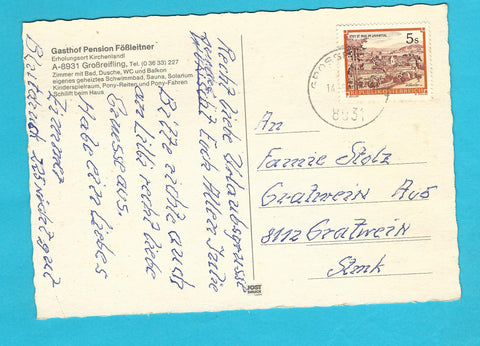 Gasthof Pension Fößleitner
Erholungsort Kirchenlandl
A-8931 Großreifling, Tel. (0 36 33) 227
Zimmer mit Bad, Dusche, WC und Balkon
eigenes geheiztes Schwimmbad, Sauna, Solarium
Kinderspielraum, Pony-Reiten und Pony-Fahren
Schilift beim Haus
Recht liebe Urlaubsgrüsse
Euch Allen Julie
Bitte richte auch
an Lilli recht liebe
Grüsse aus.
Habe ein liebes
Zimmer
ist gut
5s
REPUBLIK ÖSTERREICH
8931
An
Familie Stolz
Gratwein Au 5
8112 Gratwein
Stmk
JOST
DRUCK